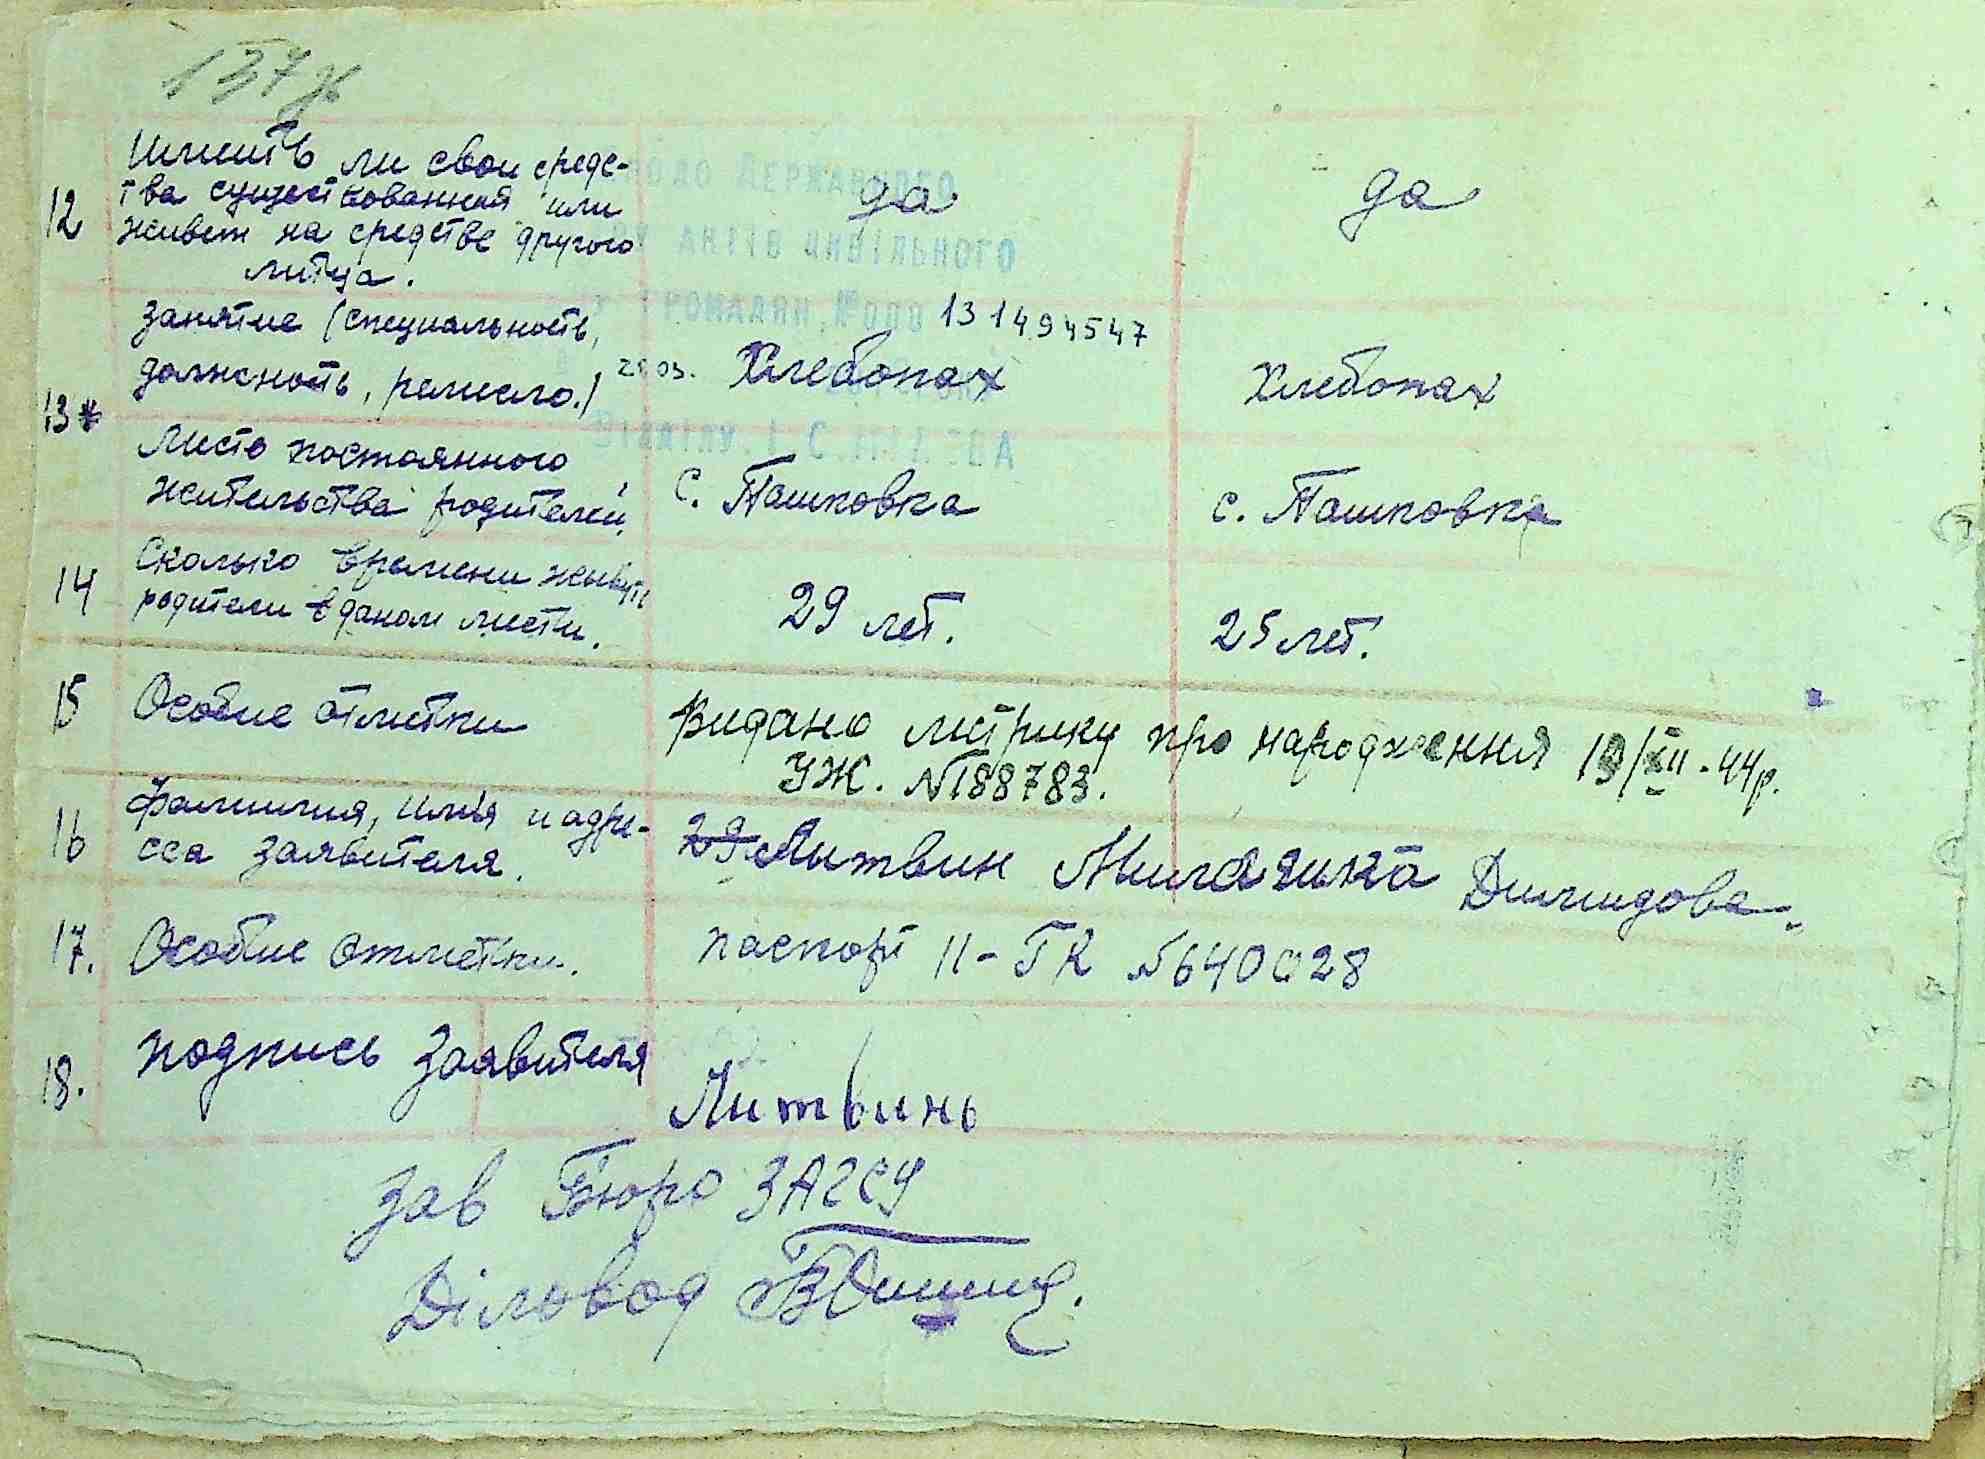 137
12 Имить ли свои средс-
тва существования или
живет на средстве другого
литца.
да
да
занятие (специальность,
должность, ремесло.)
Хлебопах
Хлебопах
131494547
13
Место постоянного
жительства родителей
с. Пашковка
с. Пашковка
14 Сколько времени живуть
родители в даном мести.
29 лет.
25 лет.
15 Особие отметки
Видано метрику про народження 19/XII-44р.
УЖ. №188783.
16 Фамилия, имя и адре-
сса заявителя.
Литвин Демидова
17. Особие отметки.
паспорт II-ГК №640028
18. подпись заявителя
Литвинь
Зав Бюро ЗАГСУ
Діловод
ДЕРЖАВНОГО
АКТІВ ЦИВІЛЬНОГО
ГРОМАДЯН,